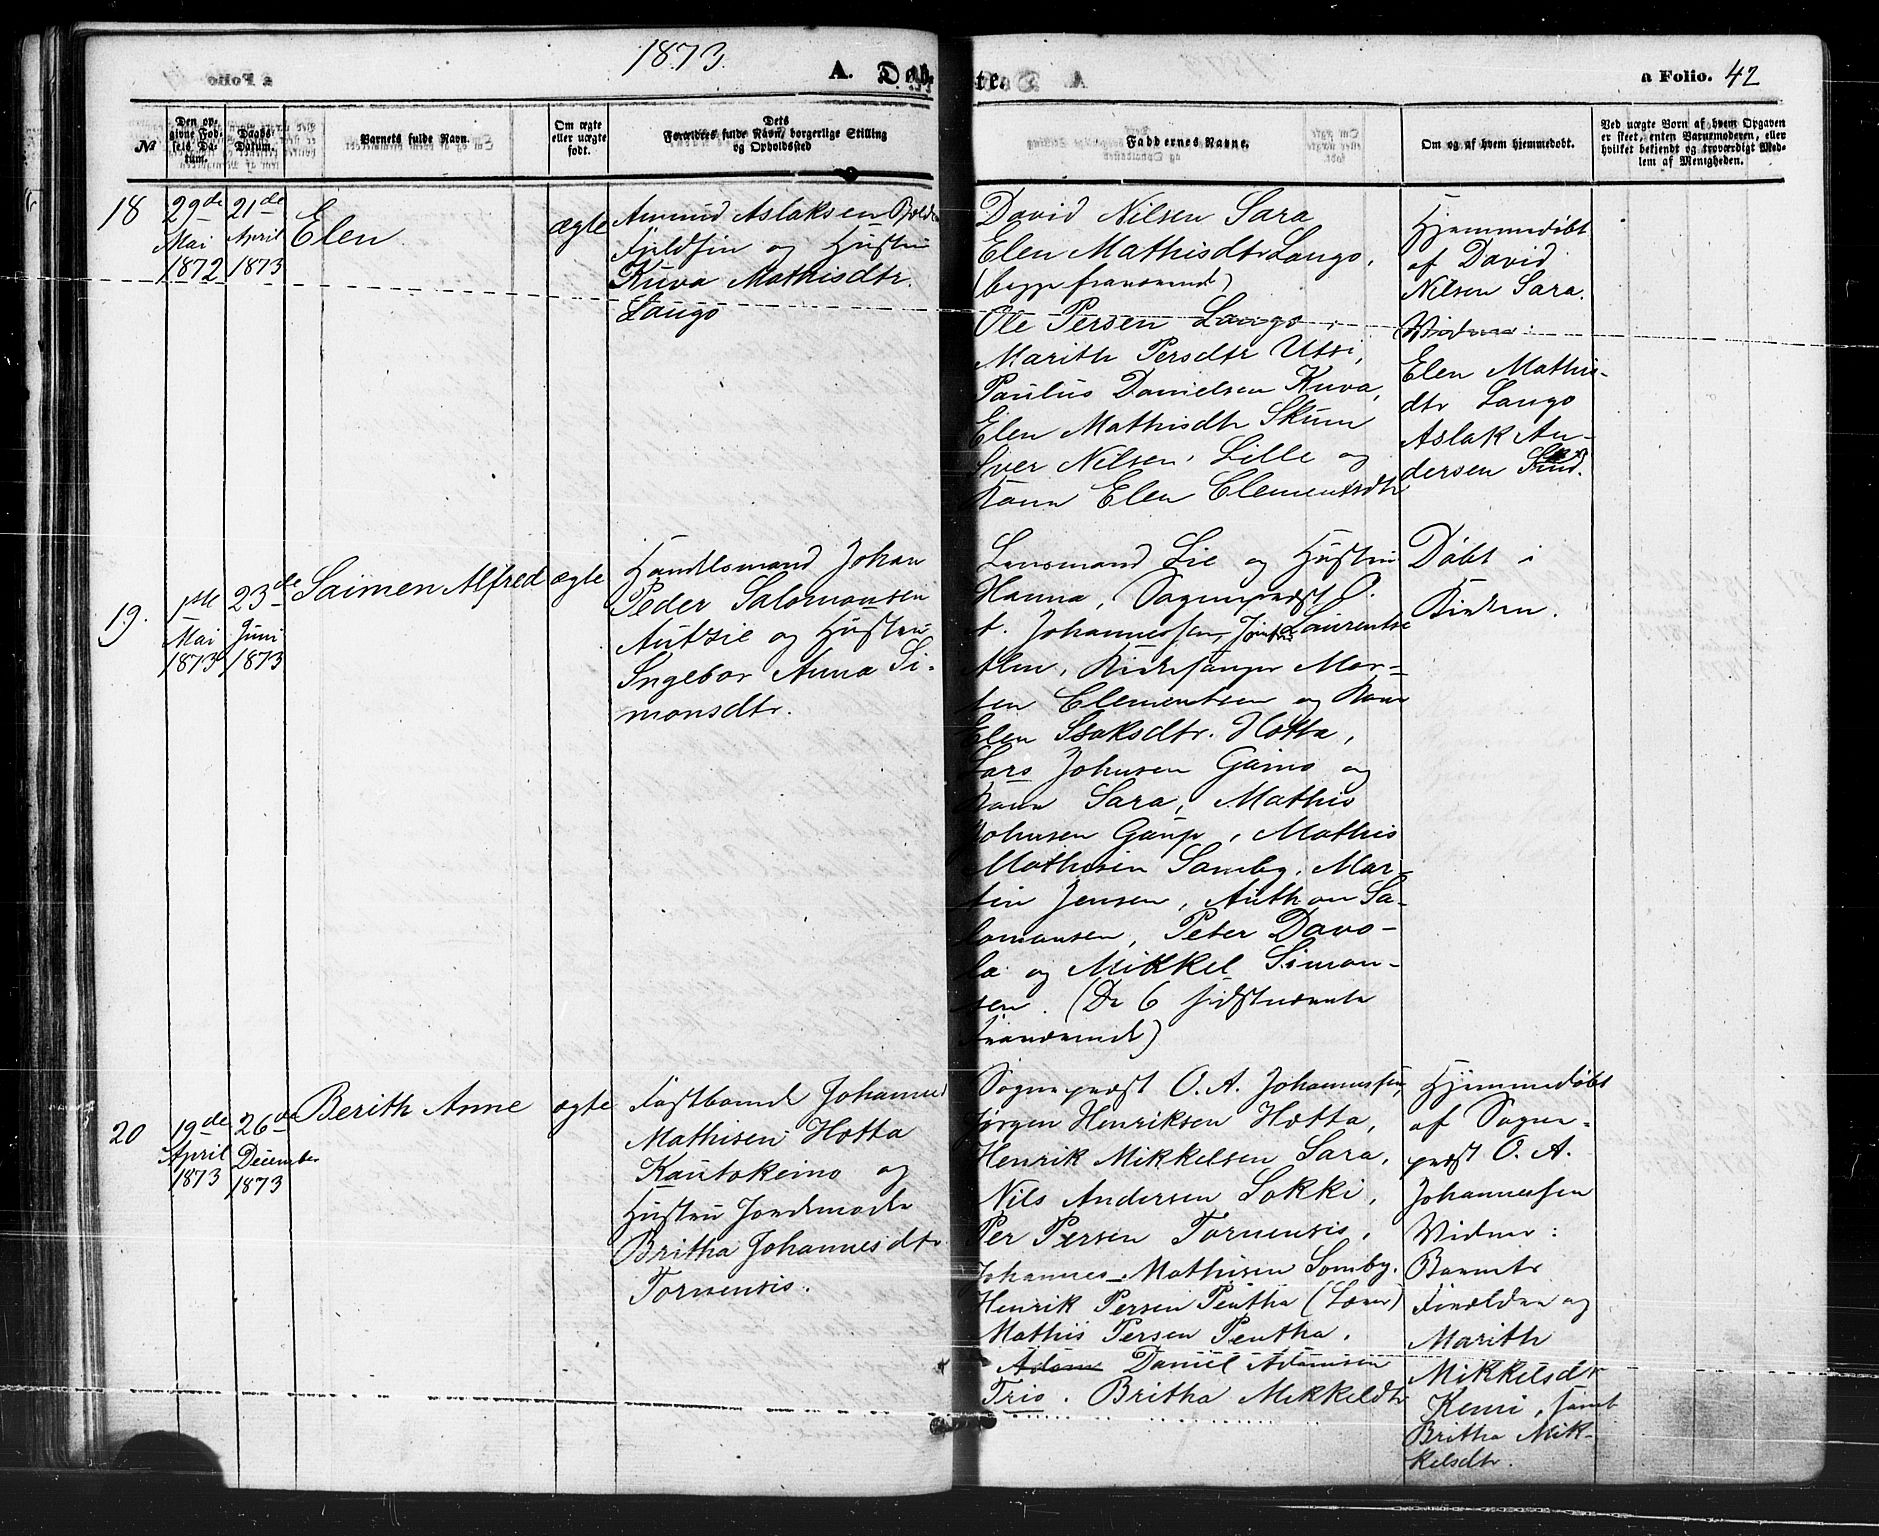 1873.
A. Døbte.
a Folio. 42
№
Den opgivne Fødsels Datum.
Daabs-Datum.
Barnets fulde Navn.
Om ægte eller uægte født.
Dets Forældres fulde Navn, borgerlige Stilling og Opholdssted
Faddernes Navne.
Om og af hvem hjemmedøbt.
Ved uægte Born af hvem Opgaven er skeet, enten Barnemoderen, eller hvilket bekjendt og troværdigt Medlem af Menigheden.
18
29de
Mai
1872
21de
April
1873
Elen
ægte
Amund Aslaksen
Fjeldfin og Hustru
Kuva Mathisdtr.
Laugo
David Nilsen Sara
Elen Mathisdtr Laugo,
(begge fraværende)
Ole Persen Laugo,
Marith Persdtr Utsi,
Paulus Danielsen Kuva,
Elen Mathisdtr Skum
Iver Nilsen Lille og
Kone Elen Clementsdtr
Hjemmedøbt
af David
Nilsen Sara.
Vidner:
Elen Mathis-
dtr Laugo
Aslak An-
dersen
19.
1ste
Mai
1873
23de
Juni
1873
Saimen Alfred
ægte
Handelsmand Johan
Peder Salomonsen
Autzie og Hustru
Ingebor Anna Si-
monsdtr.
Lensmand Lie og Hustru
Hanna, Sognepræst O.
A. Johannessen, Laurentse
Alen, Kirkesanger Mor-
ten Clementsen og Kone
Elen Isaksdtr. Hætta,
Lars Johnsen Gaino og
Kone Sara, Mathis
Johnsen Gaup, Mathis
Mathisen Somby, Mar-
tin Jensen, Anthon Sa-
lomonsen, Peter Davo-
la og Mikkel Simon-
sen. (De 6 sidstnævnte
fraværende)
Døbt i
Kirken.
20
19de
April
1873
26de
December
1873
Berith Anne
ægte
Fastboende Johannes
Mathisen Hætta
Kautokeino og
Hustru Jordemoder
Britha Johannesdtr
Tornensis.
Sognepræst O. A. Johannessen,
Jørgen Henriksen Hætta,
Henrik Mikkelsen Sara,
Nils Andersen Lokki,
Per Persen Tornensis,
Johannes Mathisen Somby.
Henrik Persen Pentha (Lærer)
Mathis Persen Pentha,
Adam Daniel Adamsen
Trio. Britha Mikkeldtr
Hjemmedøbt
af Sogne-
præst O. A.
Johannessen
Vidner:
Barnets
Forældre og
Marith
Mikkelsdtr
Kemi, samt
Britha Mik-
kelsdtr.